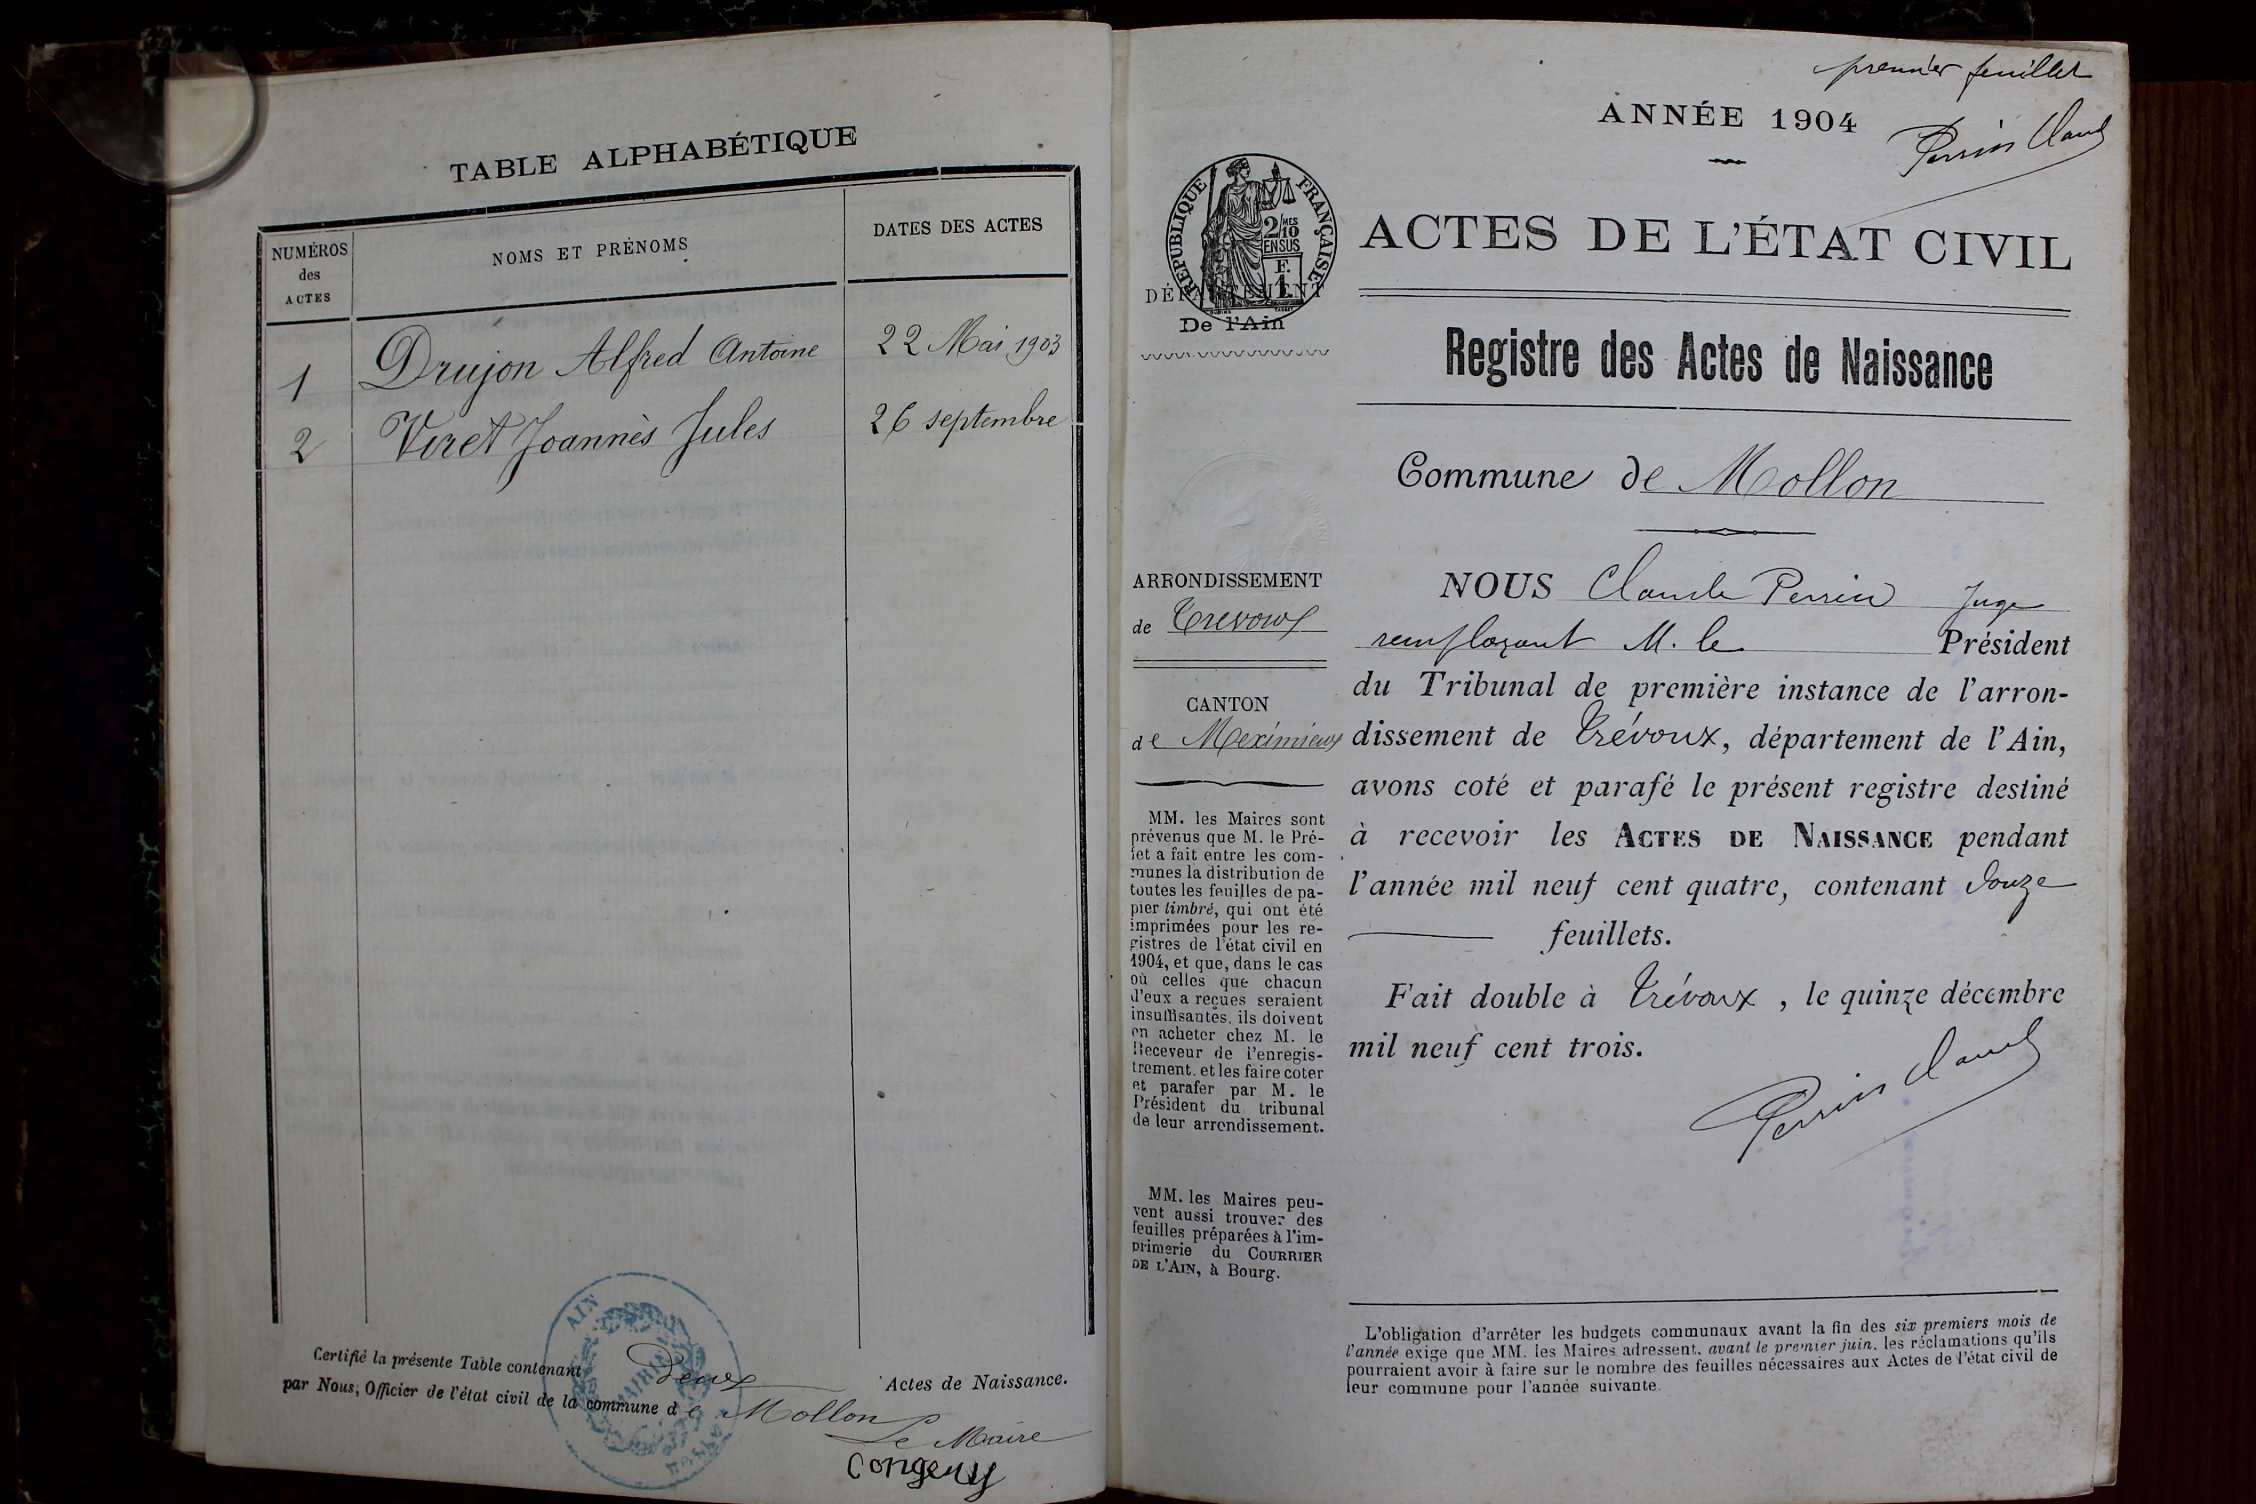 TABLE ALPHABÉTIQUE
NUMÉROS
des
ACTES
NOMS ET PRÉNOMS
DATES DES ACTES
1 Drujon Alfred Antoine 22 Mai 1903
2 Viret Joannès Jules 26 septembre
Certifié la présente Table contenant deux Actes de Naissance.
par Nous, Officier de l'état civil de la commune de Mollon
Le Maire
AIN
MAIRIE
premier feuillet
ANNÉE 1904
Perrin Claude
RÉPUBLIQUE FRANÇAISE
2/10 MES
EN SUS
F.
1
DÉPARTEMENT
De l'Ain
ACTES DE L'ÉTAT CIVIL
Registre des Actes de Naissance
Commune de Mollon
ARRONDISSEMENT
de Trevoux
CANTON
de Meximieux
MM. les Maires sont
prévenus que M. le Pré-
fet a fait entre les com-
munes la distribution de
toutes les feuilles de pa-
pier timbré, qui ont été
imprimées pour les re-
gistres de l'état civil en
1904, et que, dans le cas
où celles que chacun
d'eux a reçues seraient
insuffisantes, ils doivent
en acheter chez M. le
Receveur de l'enregis-
trement, et les faire coter
et parafer par M. le
Président du tribunal
de leur arrondissement.
MM. les Maires peu-
vent aussi trouver des
feuilles préparées à l'im-
primerie du COURRIER
DE L'AIN, à Bourg.
NOUS Claude Perrin Juge
remplaçant M. le Président
du Tribunal de première instance de l'arron-
dissement de Trévoux, département de l'Ain,
avons coté et parafé le présent registre destiné
à recevoir les ACTES DE NAISSANCE pendant
l'année mil neuf cent quatre, contenant douze
feuillets.
Fait double à Trévoux, le quinze décembre
mil neuf cent trois.
Perrin Claude
L'obligation d'arrêter les budgets communaux avant la fin des six premiers mois de
l'année exige que MM. les Maires adressent, avant le premier juin, les réclamations qu'ils
pourraient avoir à faire sur le nombre des feuilles nécessaires aux Actes de l'état civil de
leur commune pour l'année suivante.